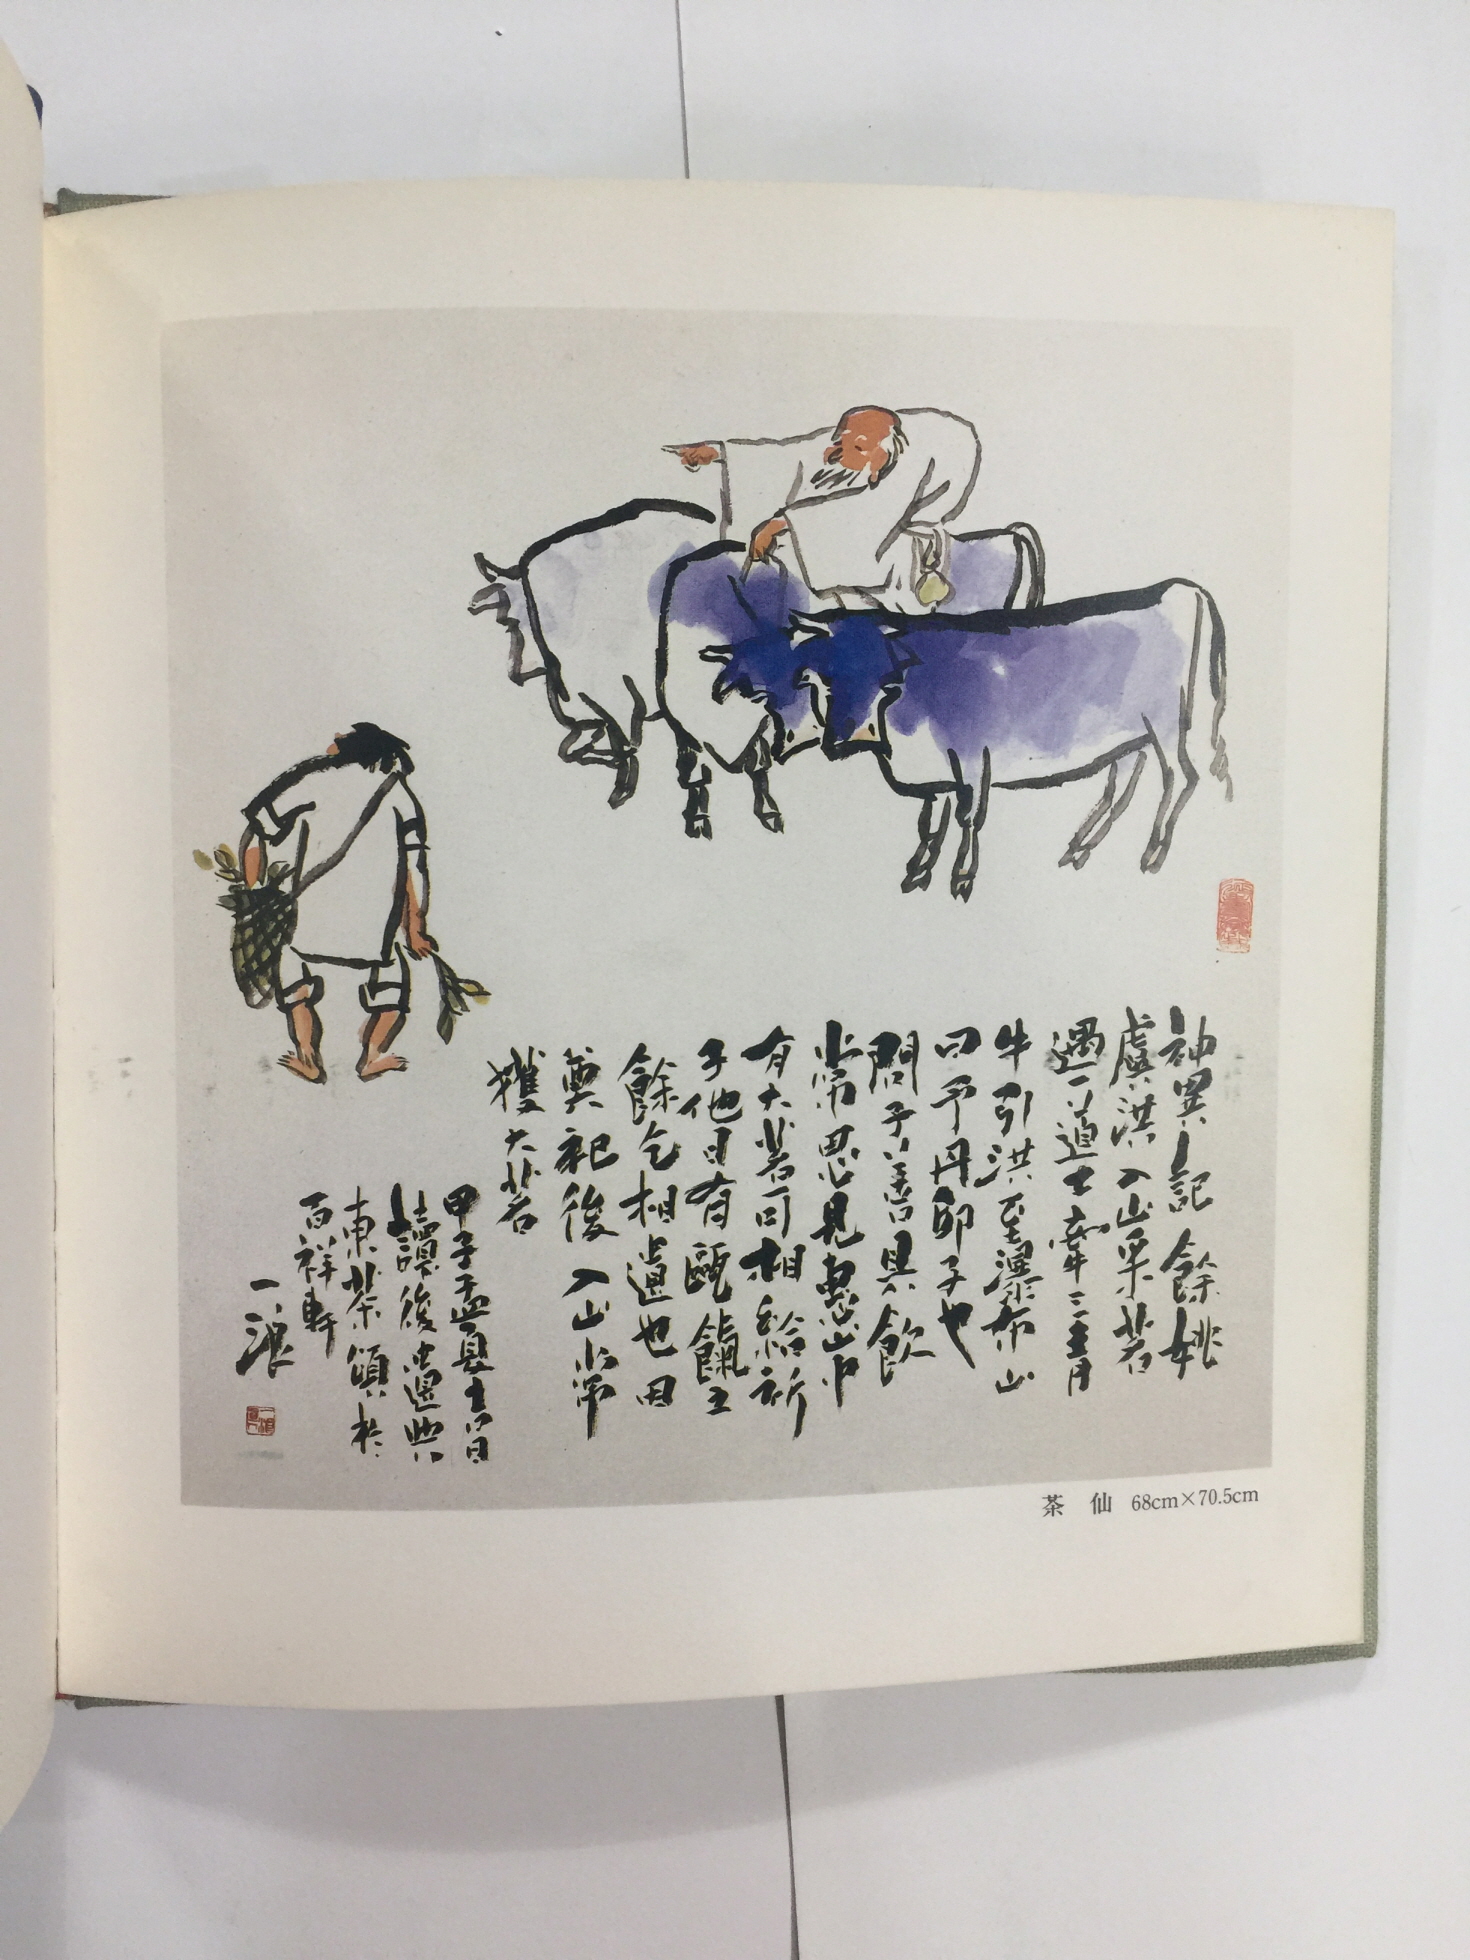 神異記餘姚
虞洪入山采茗
遇一道士牽三青
牛引洪至瀑布山
曰予丹邱子也
聞子善具飲
常思見惠山中
有大茗可相給祈
子他日有甌犧之
餘乞相遺也因
奠祀後入山常
獲大茗
甲子孟夏
讀後漫興
東茶頌於
百祥軒
一浪
茶 仙 68cm×70.5cm